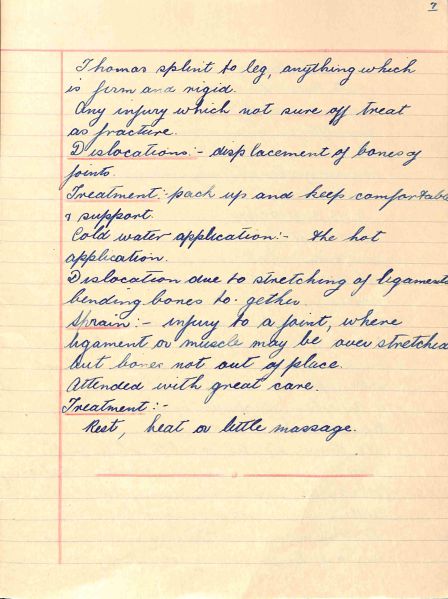 7
Thomas splint to leg, anything which
is firm and rigid.
Any injury which not sure off treat
as fracture.
Dislocations:- displacement of bones of
joints.
Treatment:- pack up and keep comfortable
& support.
Cold water application:- the hot
application.
Dislocation due to stretching of ligaments
bending bones to-gether.
Sprain:- injury to a joint, where
ligament or muscle may be over stretched
but bones not out of place.
Attended with great care.
Treatment:-
Rest, heat or little massage.